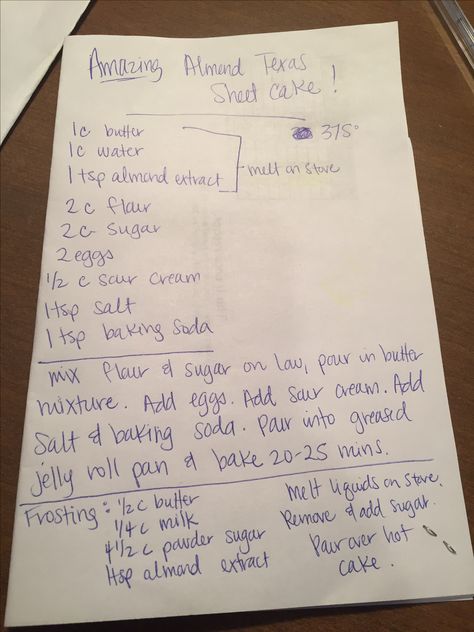 Amazing Almond Texas
Sheet Cake!
1c butter
375°
1c water
1 tsp almond extract
melt on stove
2 c flour
2 c sugar
2 eggs
1/2 c sour cream
1 tsp salt
1 tsp baking soda
mix flour & sugar on low, pour in butter
mixture. Add eggs. Add sour cream. Add
salt & baking soda. Pour into greased
jelly roll pan & bake 20-25 mins.
Frosting: 1/2 c butter
1/4 c milk
4 1/2 c powder sugar
1 tsp almond extract
Melt liquids on stove.
Remove & add sugar.
Pour over hot
cake.